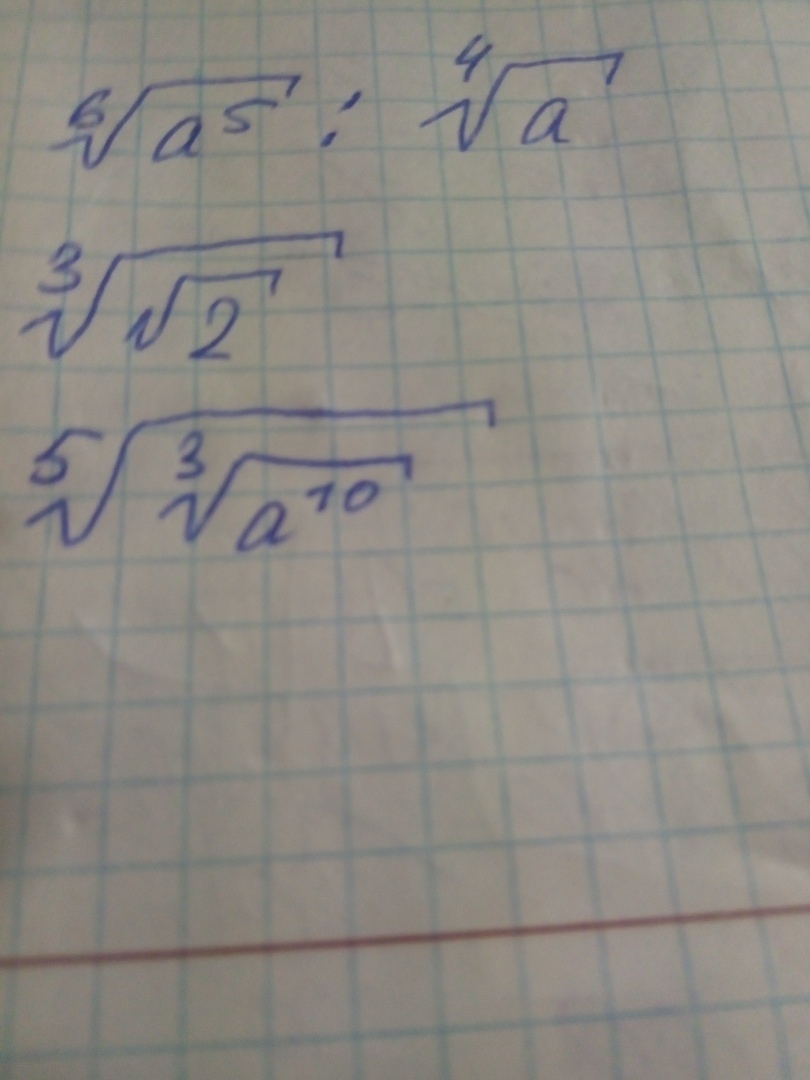 $\sqrt[6]{a^5} : \sqrt[4]{a}$
$\sqrt[3]{\sqrt{2}}$
$\sqrt[5]{\sqrt[3]{a^{10}}}$